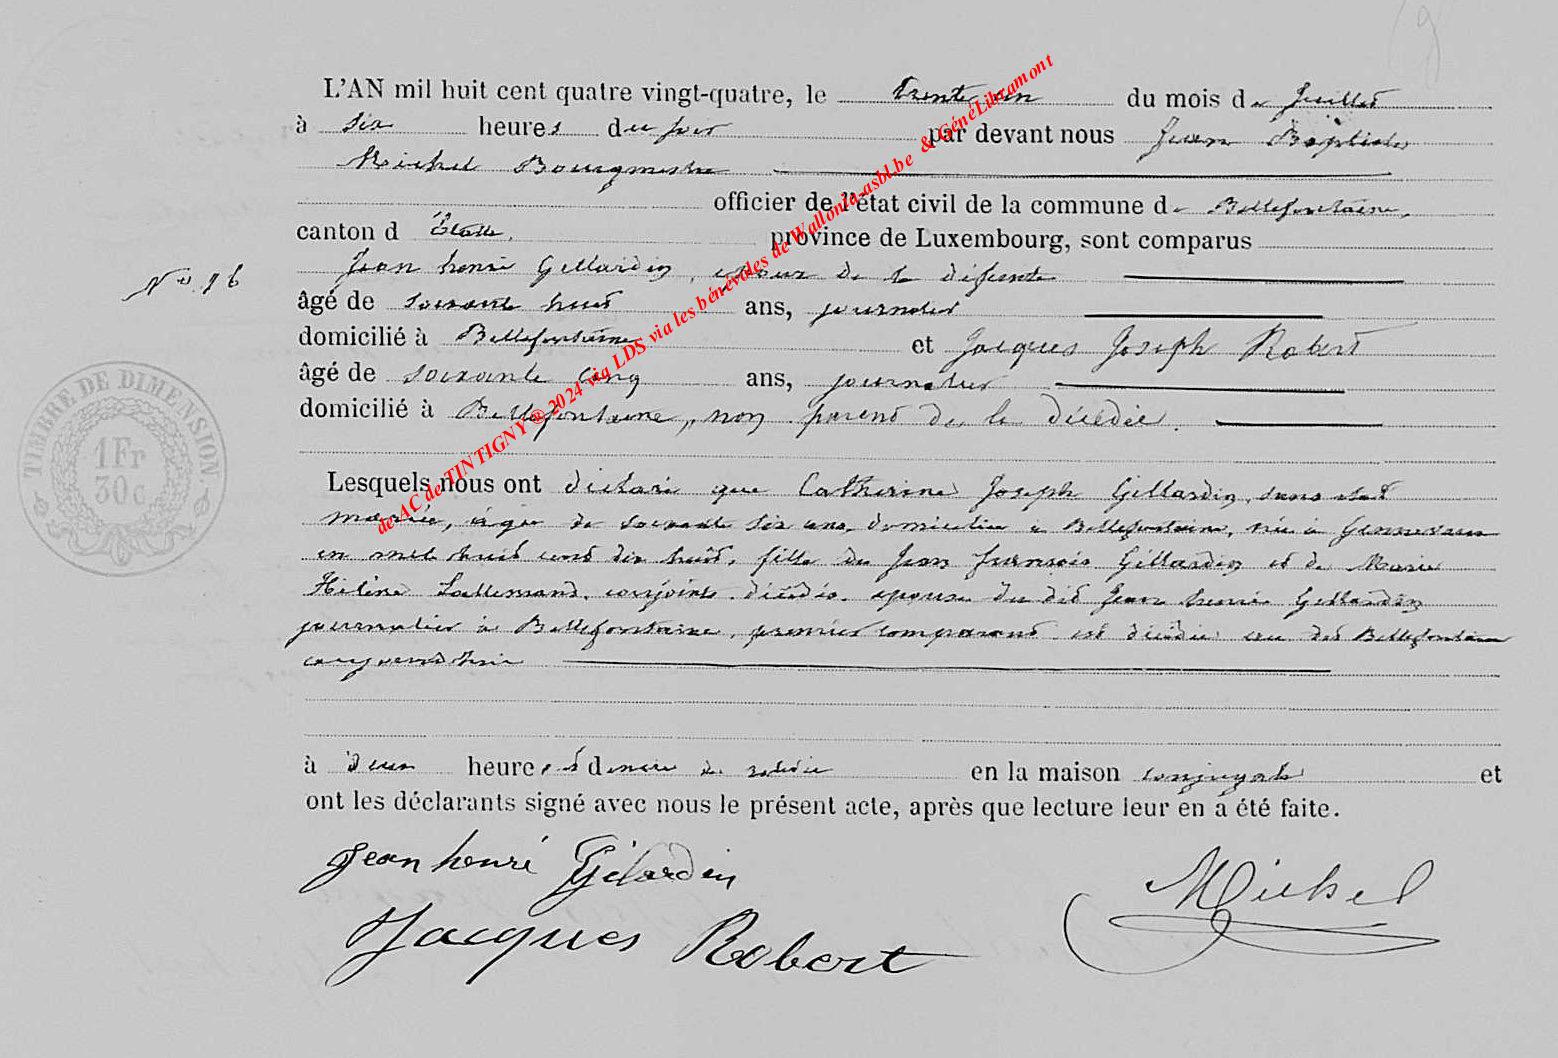 L'AN mil huit cent quatre vingt-quatre, le trente un du mois de Juillet
à six heures du soir par devant nous Jean Baptiste
Michel Bourgmestre
officier de l'état civil de la commune de Bellefontaine,
canton d'Étalle, province de Luxembourg, sont comparus
Jean henri Gillardin, époux de la défunte
N° 16
âgé de soixante huit ans, journalier
domicilié à Bellefontaine et Jacques Joseph Robert
âgé de soixante cinq ans, journalier
domicilié à Bellefontaine, non parent de la décédée.
Lesquels nous ont déclaré que Catherine Joseph Gillardin, sans état
mariée, âgée de soixante six ans, domiciliée à Bellefontaine, née à
en mil huit cent dix huit, fille de Jean françois Gillardin et de Marie
Hélène Lallemand, conjoints décédés, épouse du dit Jean henri Gillardin
journalier à Bellefontaine, premier comparant est décédée au dit Bellefontaine
aujourd'hui
à deux heures et demie de relevée en la maison conjugale et
ont les déclarants signé avec nous le présent acte, après que lecture leur en a été faite.
Jean henri Gilardin
Michel
Jacques Robert
TIMBRE DE DIMENSION.
1 Fr
30 c.
de AC de TINTIGNY ® 2024 via LDS via les bénévoles de Wallonia-asbl.be & GénéLibramont